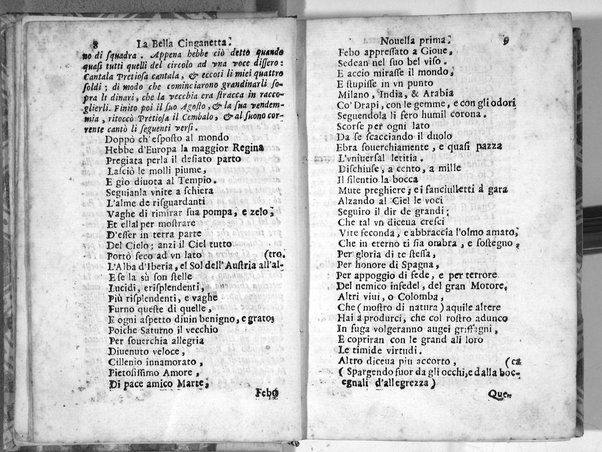 8 La Bella Cinganetta.
no di squadra. Appena hebbe ciò detto quando
quasi tutti quelli del circolo ad vna voce dissero:
Cantala Pretiosa cantala, & eccoti li miei quattro
soldi; di modo che cominciarono grandinarli so-
pra lt dinari, che la vecchia era stracca in racco-
glierli. Finito poi il suo Agosto, & la sua vendem-
mia, ritoccò Pretiosa il Cembalo, & al suono cor-
rente cantò li seguenti versi.
Doppò ch'esposto al mondo
Hebbe d'Europa la maggior Regina
Pregiata perla il desiato parto
Lasciò le molli piume,
E gio diuota al Tempio.
Seguianla vnite a schiera
L'alme de risguardanti
Vaghe di rimirar sua pompa, e zelo;
Et ella! per mostrare
D'esser in terra parte
Del Cielo; anzi il Ciel tutto
Portò seco ad vn lato (tro.
L'Alba d'Iberia, el Sol dell'Austria all'al-
E se la sù son stelle
Lucidi, erisplendenti,
Più risplendenti, e vaghe
Furno queste di quelle,
E ogni aspetto diuin benigno, e grato;
Poiche Saturno il vecchio
Per souerchia allegria
Diuenuto veloce,
Cillenio innamorato,
Pietosissimo Amore,
Di pace amico Marte,
Febo
Nouella prima. 9
Febo appressato a Gioue,
Sedean nel suo bel viso.
E accio mirasse il mondo,
E stupisse in vn punto
Milano, India, & Arabia
Co'Drapi, con le gemme, e con gli odori
Seguendola li fero humil corona.
Scorse per ogni lato
Da se scacciando il duolo
Ebra souerchiamente, e quasi pazza
L'vniuersal letitia.
Dischiuse, a cento, a mille
Il silentio la bocca
Mute preghiere; ei fanciulletti a gara
Alzando al Ciel le voci
Seguiro il dir de grandi;
Che tal vn diceua cresci
Vite seconda, e abbraccia l'olmo amato,
Che in eterno ti sia ombra, e sostegno,
Per gloria di te stessa,
Per honore di Spagna,
Per appoggio di fede, e per terrore
Del nemico infedel, del gran Motore,
Altri viui, o Colomba,
Che (mostro di natura) aquile altere
Hai a produrci, che col rostro adunco
In fuga volgeranno augei griffagni,
E copriran con le grand ali loro
Le timide virtudi.
Altro diceua più accorto, (ca
( Spargendo fuor da gli occhi, e dalla boc-
cegnali d'allegrezza)
Que-